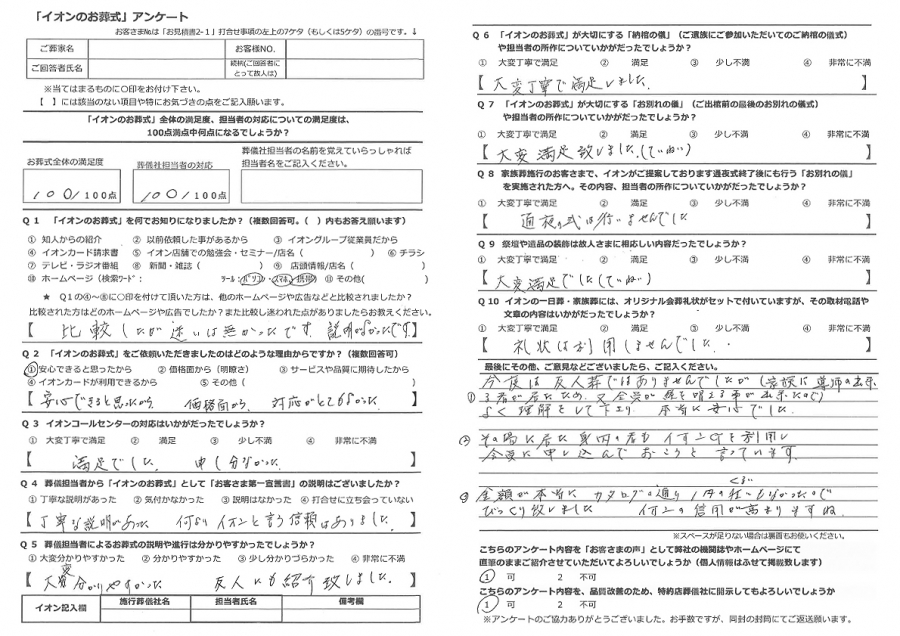 「イオンのお葬式」アンケート
お客さまNo.は「お見積書2-1」打合せ事項の左上の7ケタ（もしくは5ケタ）の番号です。↓
ご葬家名
お客様NO.
ご回答者氏名
続柄(ご回答者にとって故人は)
※当てはまるものに○印をお付け下さい。
【　】には該当のない項目や特にお気づきの点をご記入願います。
「イオンのお葬式」全体の満足度、担当者の対応についての満足度は、
100点満点中何点になるでしょうか？
お葬式全体の満足度
葬儀社担当者の対応
葬儀社担当者の名前を覚えていらっしゃれば
担当者名をご記入ください。
100/100点
100/100点
Q１　「イオンのお葬式」を何でお知りになりましたか？（複数回答可。（　）内もお答え願います）
① 知人からの紹介　② 以前依頼した事があるから　③ イオングループ従業員だから
④ イオンカード請求書　⑤ イオン店舗での勉強会・セミナー/店名（　）　⑥ チラシ
⑦ テレビ・ラジオ番組　⑧ 新聞・雑誌（　）　⑨ 店頭情報/店名（　）
⑩ ホームページ（検索ワード：　ツール：パソコン・スマホ・携帯）　⑪ その他（　）
★ Q１の④～⑧に○印を付けて頂いた方は、他のホームページや広告などと比較されましたか？
比較された方はどのホームページや広告でしたか？また比較し迷われた点がありましたらお教えください。
【 比較したが迷いは無かったです 説明が よかったです】
Q２　「イオンのお葬式」をご依頼いただきましたのはどのような理由からですか？（複数回答可）
①安心できると思ったから　② 価格面から（明瞭さ）　③ サービスや品質に期待したから
④イオンカードが利用できるから　⑤ その他（　）
【 安心できると思ったから 価格面から 対応がとてもよかった 】
Q３　イオンコールセンターの対応はいかがだったでしょうか？
① 大変丁寧で満足　② 満足　③ 少し不満　④ 非常に不満
【 満足でした 申し分なかった 】
Q４　葬儀担当者から「イオンのお葬式」として「お客さま第一宣言書」の説明はございましたか？
① 丁寧な説明があった　② 気付かなかった　③ 説明はなかった　④ 打合せに立ち会っていない
【 丁寧な説明があった 何よりイオンと言う信頼はありました 】
Q５　葬儀担当者によるお葬式の説明や進行は分かりやすかったでしょうか？
① 大変分かりやすかった　② 分かりやすかった　③ 少し分かりづらかった　④ 非常に不満
【 大変分かりやすかった 友人にも紹介致しました。】
イオン記入欄
施行葬儀社名
担当者氏名
備考欄
Q６　「イオンのお葬式」が大切にする「納棺の儀」（ご遺族にご参加いただいてのご納棺の儀式）
や担当者の所作についていかがだったでしょうか？
① 大変丁寧で満足　② 満足　③ 少し不満　④ 非常に不満
【 大変丁寧で満足しました. 】
Q７　「イオンのお葬式」が大切にする「お別れの儀」（ご出棺前の最後のお別れの儀式）
や担当者の所作についていかがだったでしょうか？
① 大変丁寧で満足　② 満足　③ 少し不満　④ 非常に不満
【 大変満足致しました.（ていねい） 】
Q８　家族葬施行のお客さまで、イオンがご提案しております通夜式終了後にも行う「お別れの儀」
を実施された方へ。その内容、担当者の所作についていかがだったでしょうか？
① 大変丁寧で満足　② 満足　③ 少し不満　④ 非常に不満
【 通夜の式は行いませんでした 】
Q９　祭壇や道具の装飾は故人さまに相応しい内容だったでしょうか？
① 大変丁寧で満足　② 満足　③ 少し不満　④ 非常に不満
【 大変満足でした（ていねい） 】
Q10　イオンの一日葬・家族葬には、オリジナル会葬礼状がセットで付いていますが、その取材電話や
文章の内容はいかがだったでしょうか？
① 大変丁寧で満足　② 満足　③ 少し不満　④ 非常に不満
【 礼状はお利用しませんでした. 】
最後にその他、ご意見などございましたら、ご記入ください。
① 今度は友人葬ではありませんでしたが（家族に導師の出来
る者が居たため、又全員が経を唱える事が出来たので）
よく理解をして下さり 本当に安心でした.
② その場に居た身内の者も イオンを利用し
今度に申し込んでおこうと言っています.
③ 金額が本当に カタログの通り 1円の狂いもなかったので
びっくり致しました イオンの信用が高まりますね.
※スペースが足りない場合は裏面もお使いください。
こちらのアンケート内容を「お客さまの声」として弊社の機関誌やホームページにて
直筆のままご紹介させていただいてよろしいでしょうか（個人情報はふせて掲載致します）
１　可　２　不可
こちらのアンケート内容を、品質改善のため、特約店葬儀社に開示してもよろしいでしょうか
１　可　２　不可
※アンケートのご協力ありがとうございました。お手数ですが、同封の封筒にてご返送願います。